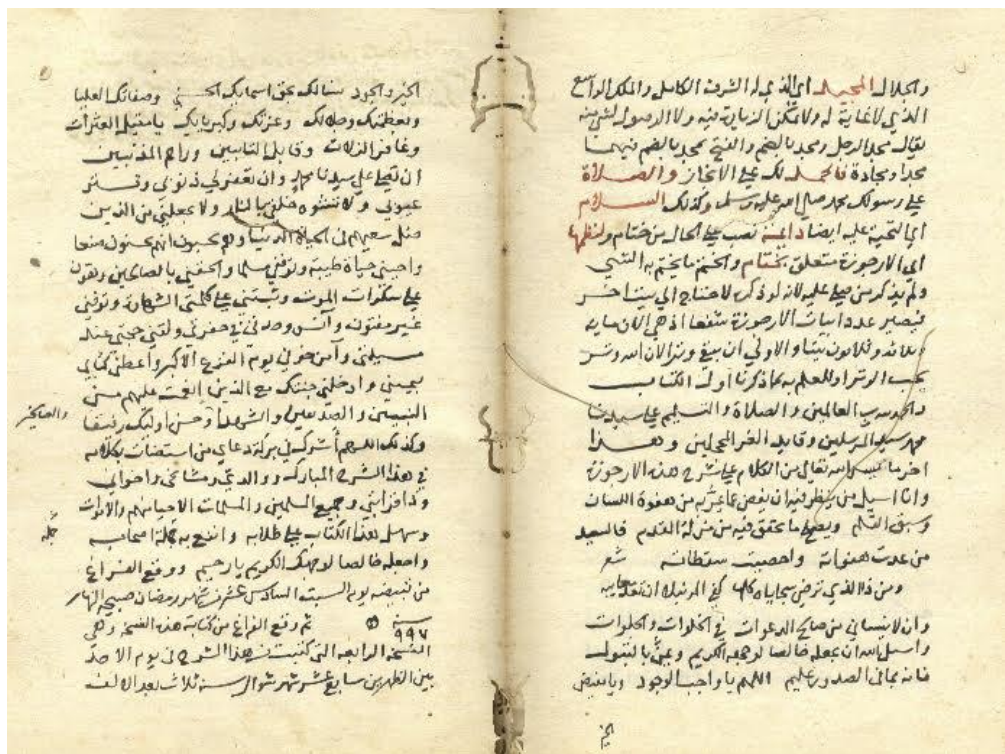 والجلال المجيد اي الذي له الشرف الكامل والملك الواسع
الذي لا غاية له ولا يمكن الزيادة فيه ولا الوصول لشي منه
يقال مجد الرجل ومجد بالضم والفتح يمجد بالضم فيهما
مجدا ومجادة فالحمد لك علي الانجاز والصلاة
علي رسولك محمد صلي الله عليه وسلم وكذلك السلام
اي التحية عليه ايضا دايمة نصب علي الحال من ختام ونظمها
اي الارجوزة متعلق بختام والختم ما يختم به الشي
ولم يذكر من صلي عليه لانه لو ذكره لاحتاج الي بيت اخر
فيصير عدد ابيات الارجوزة شفعا اذ هي الان مايه
وثلاثة وثلاثون بيتا والاولي ان يبقي وترا لان الله وتر
يحب الوتر وللعلم به مما ذكرنا اول الكتاب
والحمد لله رب العالمين والصلاة والتسليم علي سيدنا
محمد سيد المرسلين وقايد الغر المحجلين وهذا
اخر ما يسره الله تعالي من الكلام علي شرح هذه الارجوزة
وانا اسيل من ينظر فيه ان يغض عما عثر به من هفوة اللسان
وسبق القلم ويصلح ما تحقق فيه من زلة القدم فالسعيد
من عدت هفواته واحصيت سقطاته شعر
ومن ذا الذي ترضي سجاياه كلها كفي المرء نبلا ان تعد معايبه
وان لا ينساني من صالح الدعوات في الخلوات والجلوات
واسيل الله ان يجعله خالصا لوجهه الكريم وعني بالقبول
فانه بما في الصدور عليم اللهم يا واجب الوجود ويا مفيض
الخير
الخير والجود نسالك بحق اسمايك الحسني وصفاتك العليا
وبعظمتك وجلالك وعزتك وكبريايك يا مقيل العثرات
وغافر الزلات وقابل التايبين وراحم المذنبين
ان تصلي علي سيدنا محمد وان تعفو لي ذنوبي وتستر
عيوبي ولا تشوه خلقي بالنار ولا تجعلني من الذين
ضل سعيهم في الحياة الدنيا وهم يحسبون انهم يحسنون صنعا
واحيني حياة طيبة وتوفني مسلما والحقني بالصالحين وهون
علي سكرات الموت وثبتني علي كلمتي الشهادة وتوفني
غير مفتون وآنس وحدتي في حفرتي ولقني حجتي عند
مسيلتي وآمن خوفي يوم الفزع الاكبر واعطني كتابي
بيميني وادخلني جنتك مع الذين انعمت عليهم من
النبيين والصديقين والشهداء وحسن اوليك رفيقا
والصالحين
وكذلك اللهم أشرك في بركة دعاي من استضات بكلامه
في هذا الشرح المبارك ووالدي ومشايخي واخواني
وذا قرابتي وجميع المسلمين والمسلمات الاحيا منهم والاموات
وسهل هذا الكتاب علي طلابه وانفع به جملة اصحابه
جملة
واجعله خالصا لوجهك الكريم يا رحيم ووقع الفراغ
من تبييضه يوم السبت السادس عشر من شهر رمضان صبيحة النهار
سنة ٩٩٧ ثم وقع الفراغ من كتابة هذه النسخة وهي
النسخة الرابعة التي كتبت من هذا الشرح في يوم الاحد
بين الظهرين سابع عشر شهر شوال سنة ثلاث بعد الالف